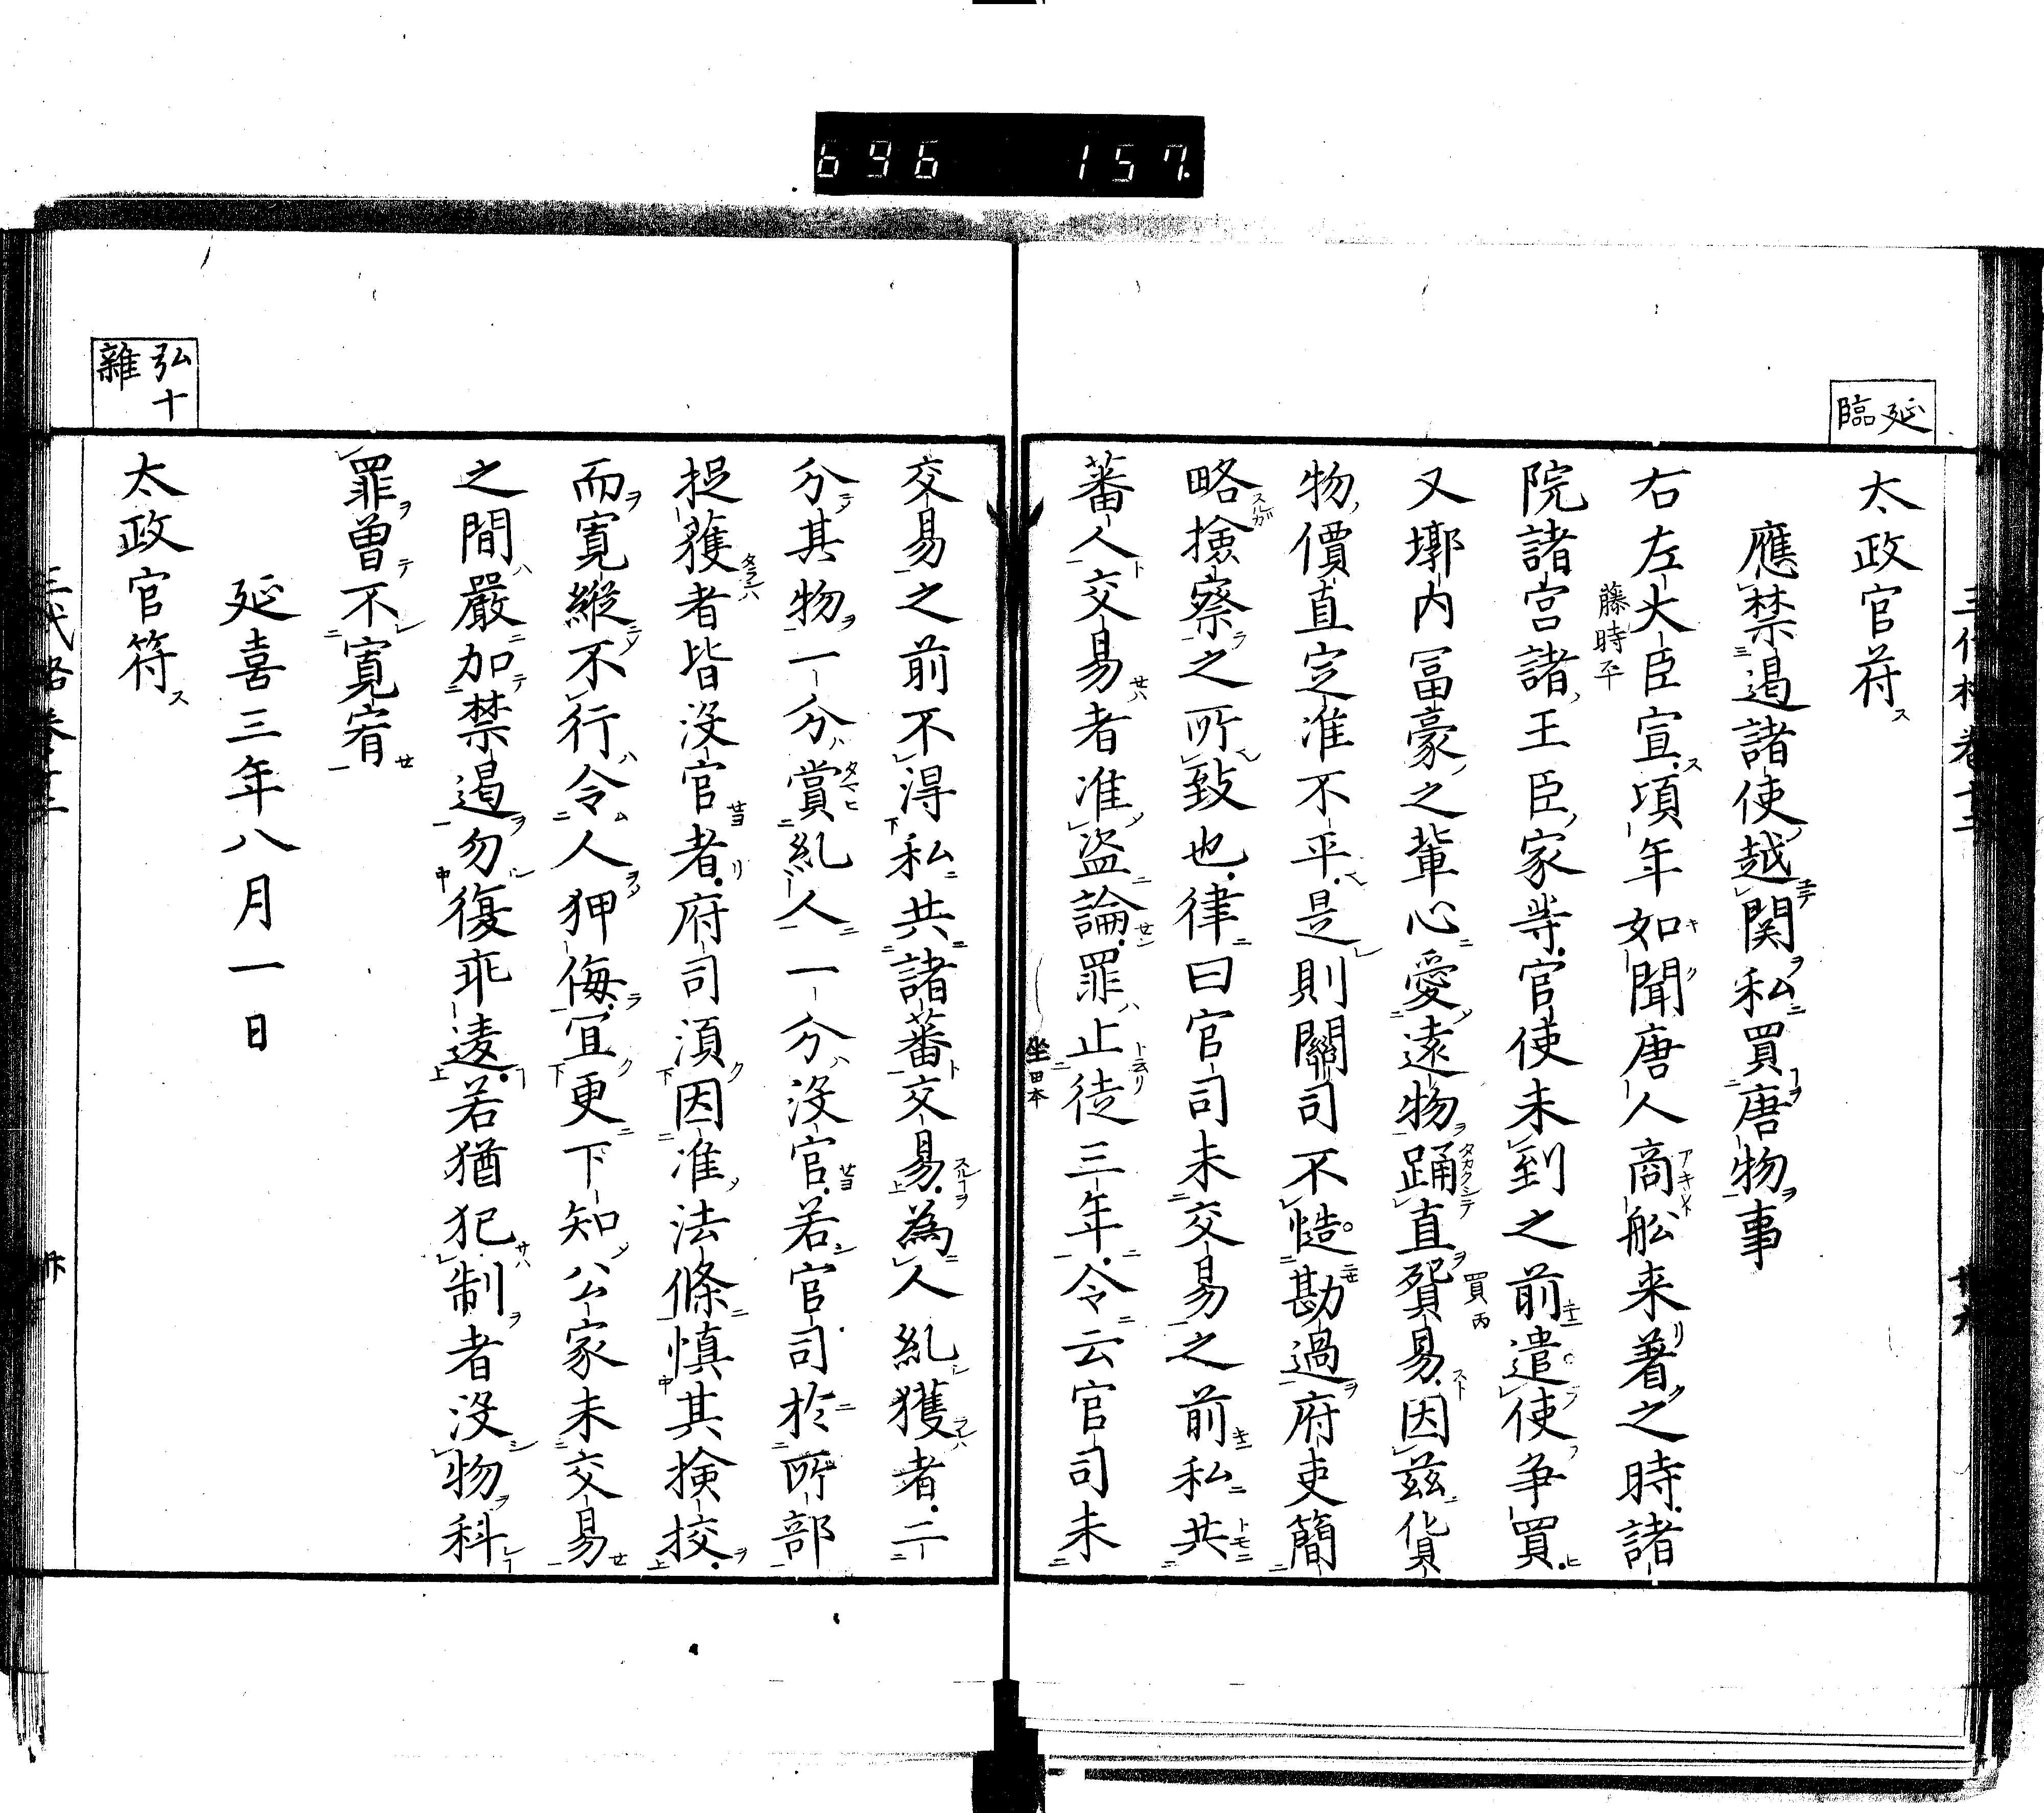 696 157
延
臨
太政官符ス
應禁遏諸使越関私買唐物事
右左大臣宣頃年如聞唐人商舩来着之時諸
藤時平
院諸宮諸王臣家等官使未到之前遣使争買
又墎内冨豪之輩心愛遠物踊直貿易因茲貨
買丙
物價直定准不平是則關司不慥勘過府吏簡
略撿察之所致也律曰官司未交易之前私共
蕃人交易者准盗論罪止徒三年令云官司未
坐田本
交易之前不得私共諸蕃交易為人糺獲者二
分其物一分賞糺人一分没官若官司於所部
捉獲者皆没官者府司須因准法條慎其撿挍
而寛縦不行令人狎侮宜更下知公家未交易
之間嚴加禁遏勿復乖違若猶犯制者没物科
罪曽不寛宥
延喜三年八月一日
弘十
雜
太政官符ス